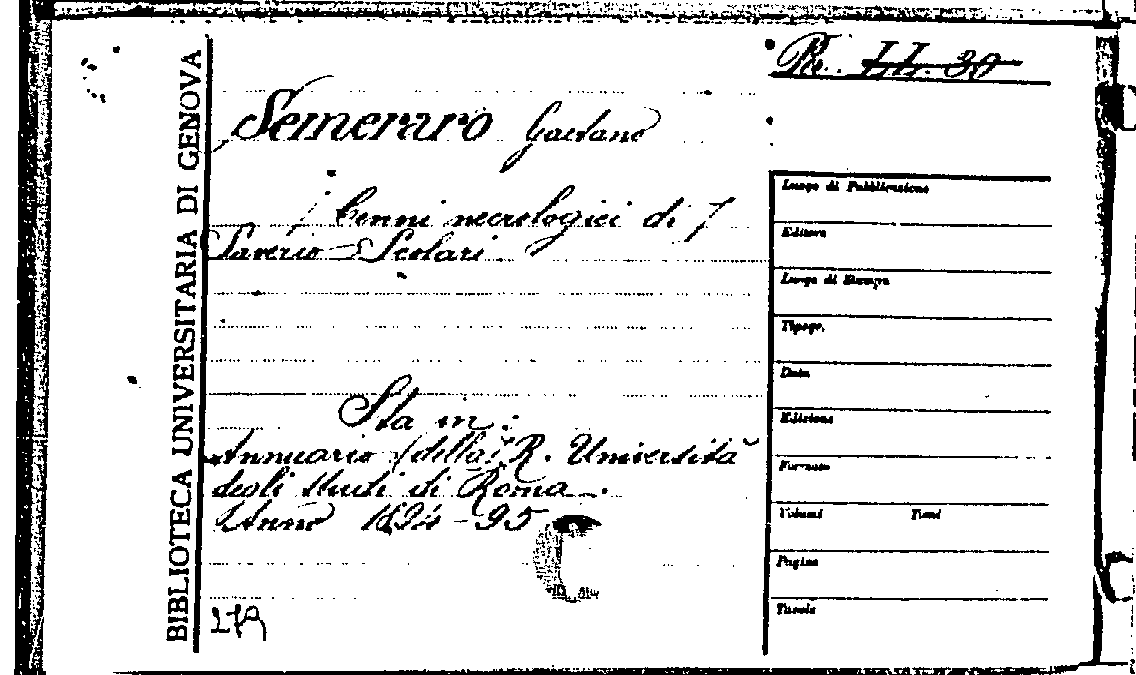 BIBLIOTECA UNIVERSITARIA DI GENOVA
LL. 30
Semeraro Gaetano
Cenni necrologici di
Saverio Scolari.
Sta in:
Annuario (della) R. Università
degli Studi di Roma.
Anno 1894-95
279
Luogo di Pubblicazione
Editore
Luogo di Stampa
Tipogr.
Data
Edizione
Formato
Volumi Tomi
Pagine
Tavole